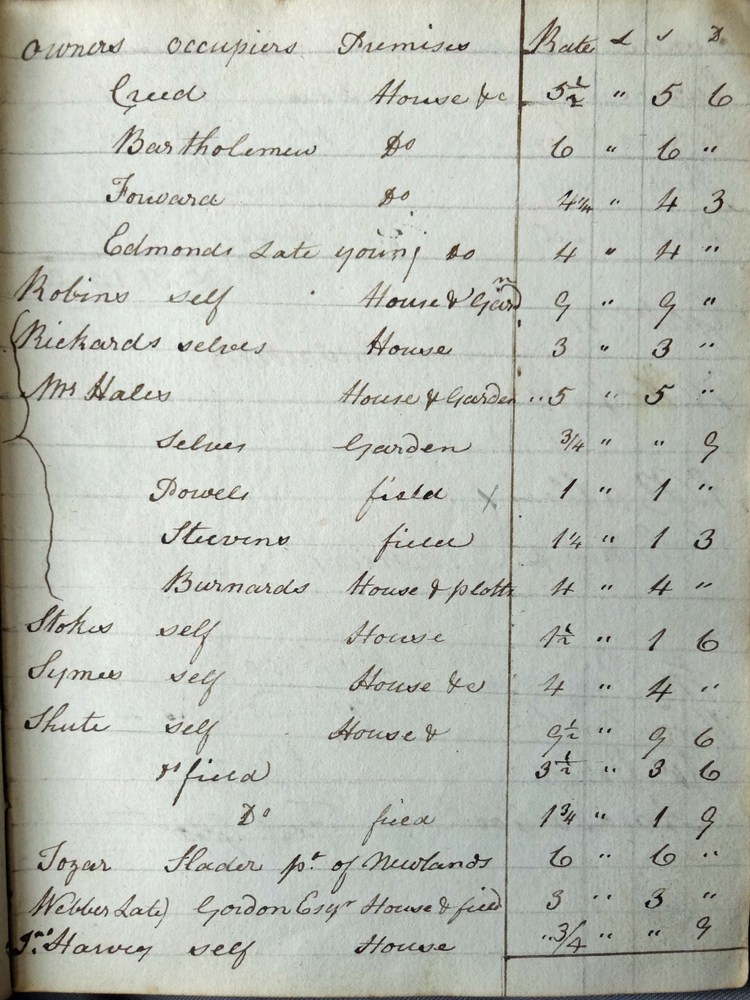 Owners occupiers Premises Rate £ s D
Creed House &c 5 1/2 " 5 6
Bartholemew Do 6 " 6 "
Forward Do 4 1/4 " 4 3
Edmonds Late young Do 4 " 4 "
Robins self House & Gardn 9 " 9 "
Rickards selves House 3 " 3 "
Mrs Hales House & Garden " 5 " 5 "
Selves Garden 3/4 " " 9
Powels field x 1 " 1 "
Steevens field 1 1/4 " 1 3
Burnards House & plotts 4 " 4 "
Stokes self House 1 1/2 " 1 6
Symes self House &c 4 " 4 "
Shute self House & 9 1/2 " 9 6
field 3 1/2 " 3 6
Do field 1 3/4 " 1 9
Tozar Slader pt of Newlands 6 " 6 "
Webber Late) Gordon Esqr House & field 3 " 3 "
Jno Harvey self House " 3/4 " " 9